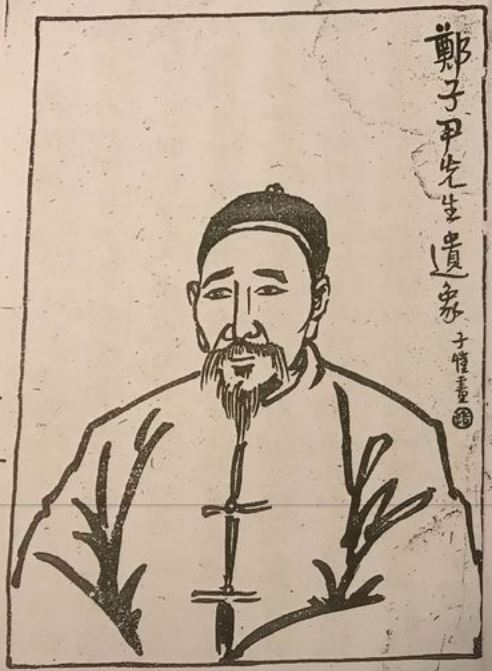 鄭子尹先生遺象 子愷畫